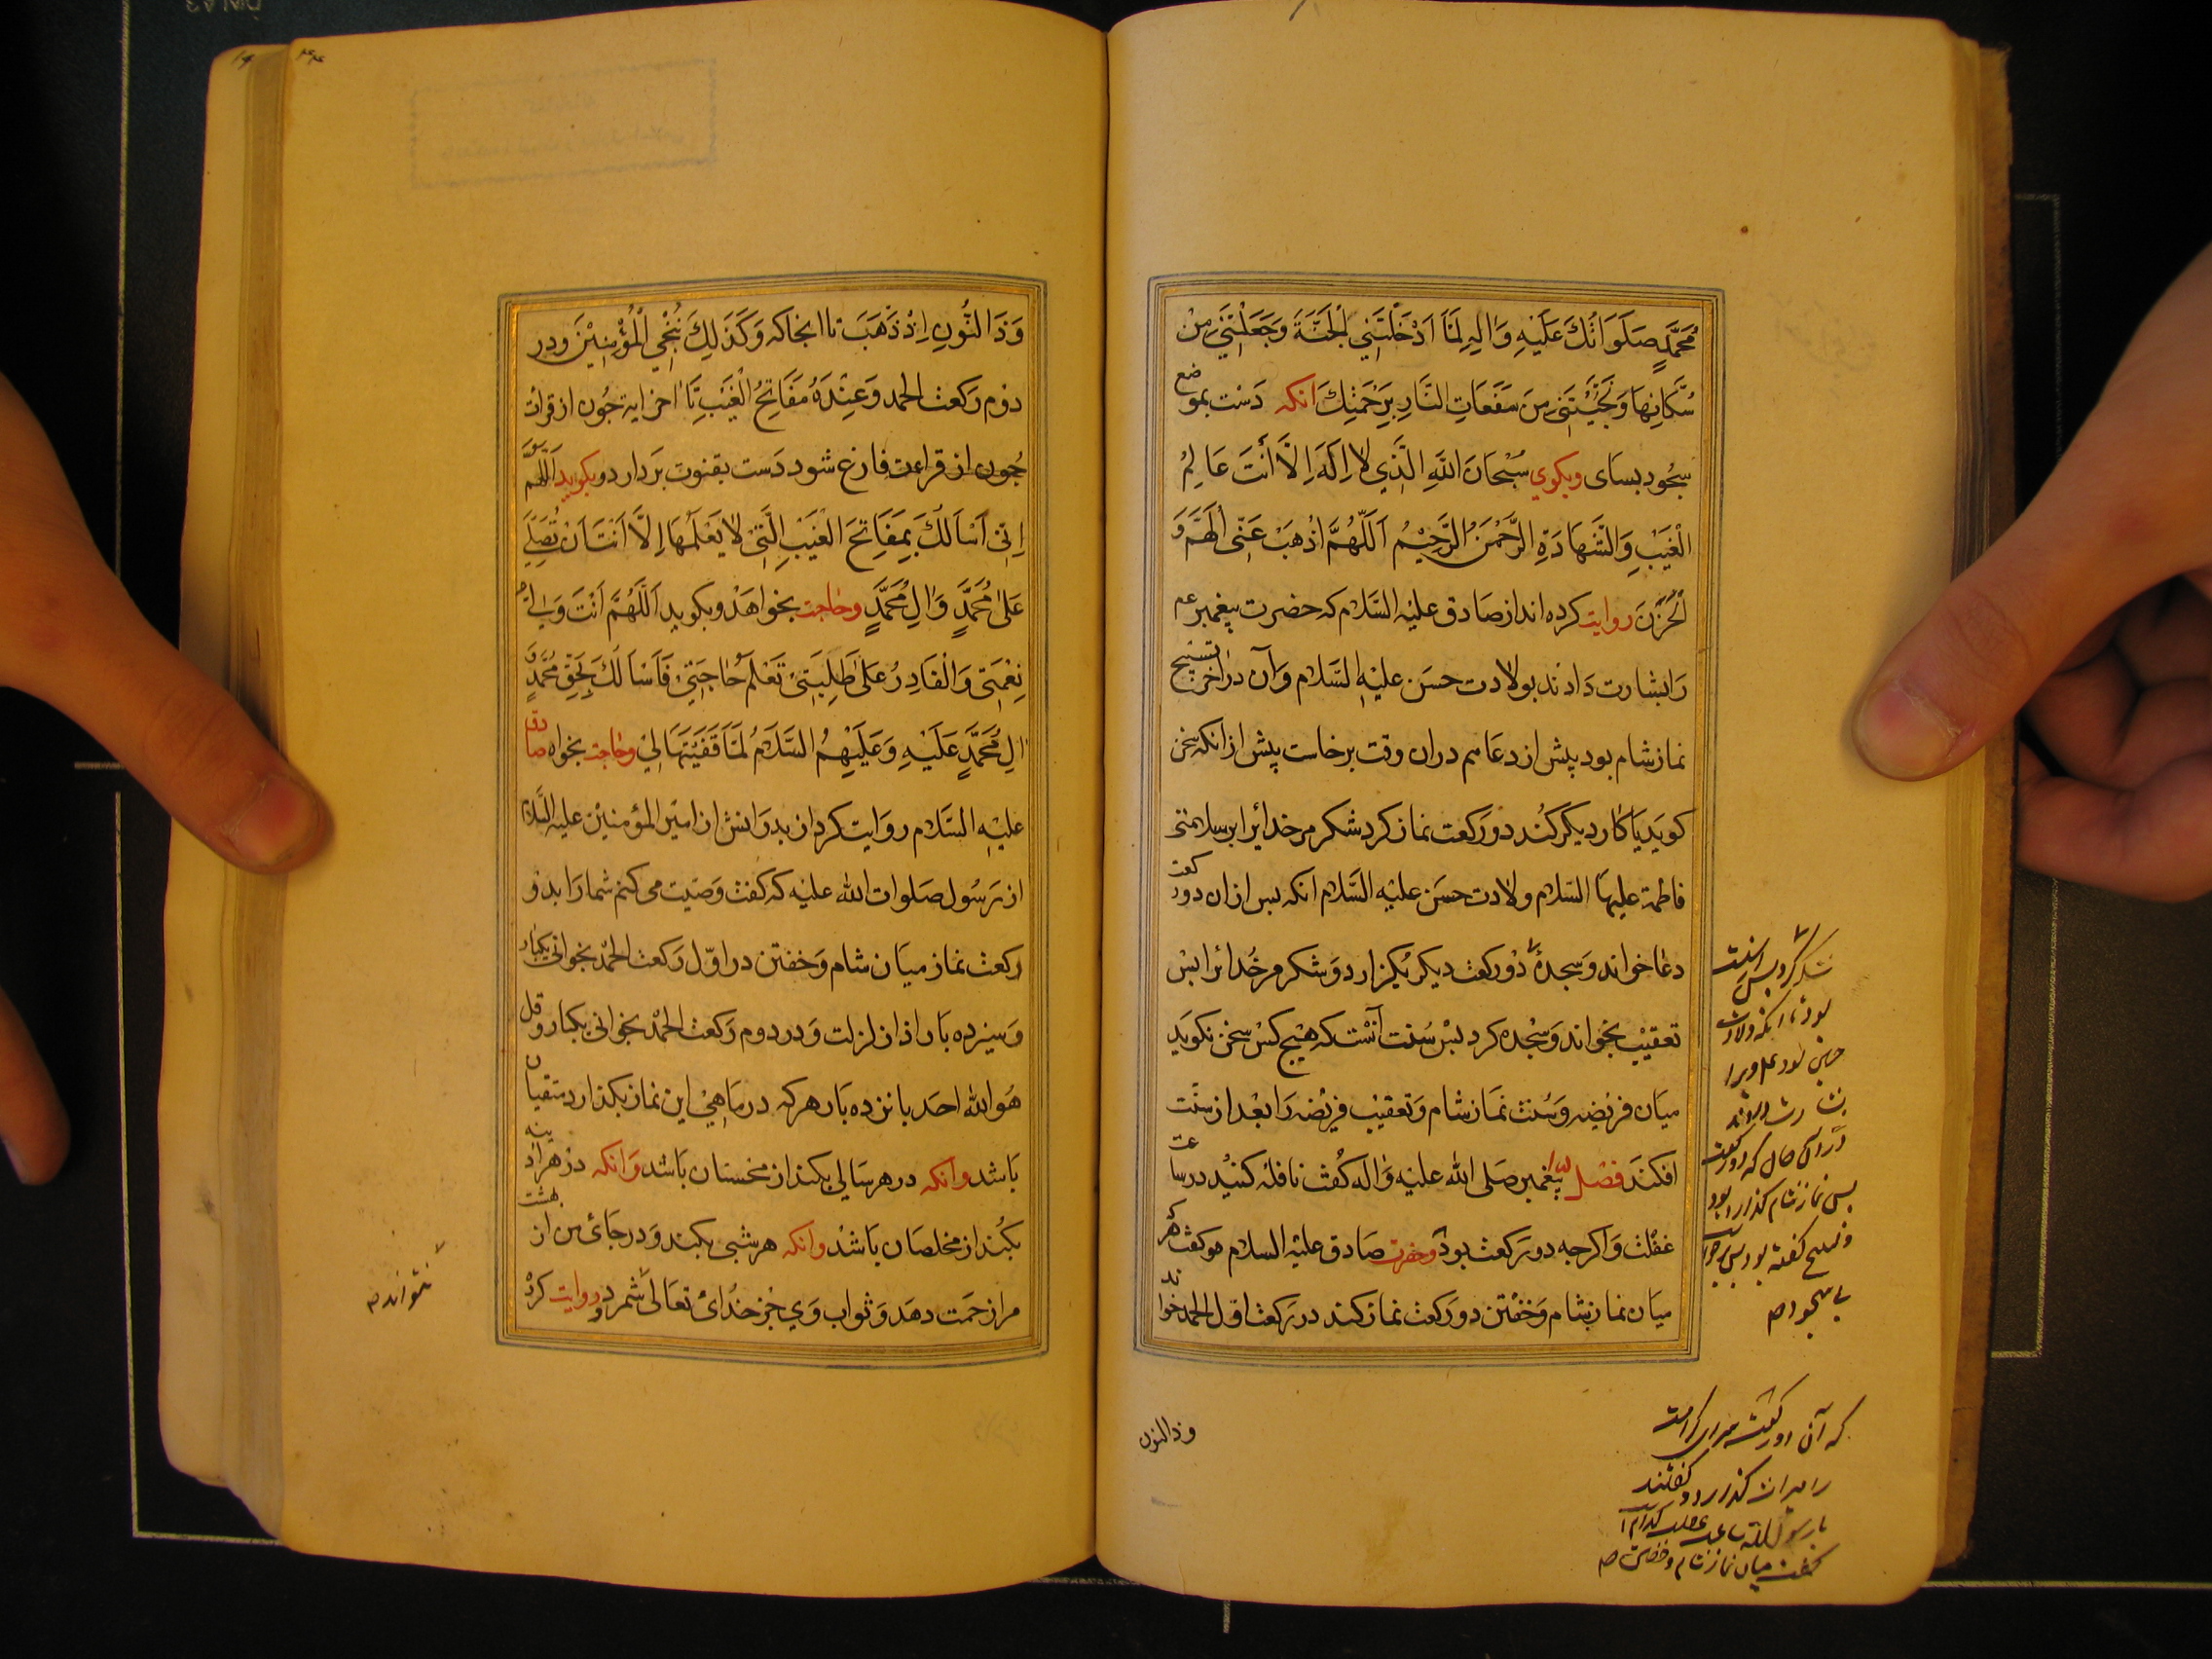 مُحَمَّدٍ صَلَوَاتُكَ عَلَيْهِ وَالِهِ لَمَّا اَدْخَلْتَنِي الْجَنَّةَ وَجَعَلْتَنِي مِنْ
سُكَّانِهَا وَنَجَّيْتَنِي مِنَ سَفَعَاتِ النَّارِ بِرَحْمَتِكَ انکه دست بموضع
سجُود بسای وبکوي سُبْحَانَ اللَّهِ الَّذِي لا اِلَهَ اِلَّا أَنْتَ عَالِمُ
الْغَيْبِ وَالشَّهَادَةِ الرَّحْمَنُ الرَّحِيْمُ اَللّهُمَّ اذْهَبْ عَنِّي الْهَمَّ وَ
الْحُزْنَ روایت کرده اند از صادق علیه السَّلام که حضرت پیغمبر عم
رَا بشارت دَادند بولادت حسَن علیهِ السَّلام وَآن در آخر تسبیح
نماز شام بود پیش از دعا هم دران وقت برخاست پیش از انکه سخن
کوید یا کار دیکر کُند دو رکعت نماز کرد شکر مر خدائرا بر سلامتی
فاطمة علیها السّلام ولادت حسَن علیه السَّلام انکه بس ازان دو رکعت
دعا خواند وسجدهٔ دو رکعت دیکر بگزارد وشکر مر خُدائرا بس
تعقیب بخواند وسجْده کرد بس سُنت آنست که هیچ کس سخن نکوید
میان فریضه وسُنت نماز شام وَتعقیب فریضه رَا بعْد از سنَّت
افکند فضل پیغمبر صَلی الله علیه وَاله کُفت نافلهٔ کنید در ساعت
غفلت وَاکرجه دو رَکعت بود وحضرت صَادق علیه السلام هر که
میان نماز شام وَخفتن دو رکعت نماز کند در رَکعت اوّل الحمد خواند
وذالنون
شکر کرد بس
بود تا انکه ولادت
حسین بود علم ویرا
بشارت دادند
در آن حال که دو رکعت
بس نماز شام کذارده بود
وتسبیح کفته بود
که آن دو رکعت سرای کرامت
را میراث کذارد و کفتند
یا رسول الله ساعت غفلت کدام
کفت میان نماز شام و خفتن صح
وَذَا النُّونِ اِذْ ذَهَبَ تا انجاکه وَكَذَلِكَ نُنْجِي الْمُؤْمِنِيْنَ ودر
دوم رَکعت الحمد وَعِنْدَهُ مَفَاتِحُ الْغَيْبِ تا اخر ایة جُون از قرات
جُون از قراءت فارغ شود دَست بقنوت بَردارد وبکوید اَللّهُمَّ
اِنِّي اَسْاَلُكَ بِمَفَاتِحَ الْغَيْبِ الَّتِي لا يَعْلَمُهَا اِلَّا اَنْتَ اَنْ تُصَلِّيَ
عَلىٰ مُحَمَّدٍ وَالِ مُحَمَّدٍ وحاجت بخواهَد وبکوید اَللّهُمَّ اَنْتَ وَلِيُّ
نِعْمَتِي وَالْقَادِرُ عَلىٰ طَلِبَتِي تَعْلَمُ حَاجَتِي فَاَسْاَلُكَ بِحَقِّ مُحَمَّدٍ وَ
الِ مُحَمَّدٍ عَلَيْهِ وَعَلَيْهِمُ السَّلَامُ لَمَّا قَضَيْتَهَا لِي وحاجت بخواه صادق
علیهِ السَّلام روَایت کرد از بدرانش از امیر المؤمنین علیه السَّلام
از رَسُول صَلوات الله علیه که کفت وَصیّت می کنم شما رَا بدو
رکعت نماز میان شام وَخفتن در اوّل رَکعت الحمْد بخوانی یکبار
وَسیزده بار اذا زلزلت وَدر دوم رَکعت الحمْد بخوانی یکبار وقل
هُوَ الله احَد بانزده بَار هر که در ماهی این نماز بکذارد متقیان
باشد وانکه در هر سَالی بکند از محسنان بَاشد وَانکه در هر ادینه
بکُند از مخلصان بَاشد وانکه هر شبی بکند وَدر جائ من از بهشت
مرا زحمت دهَد وَثواب وَي جُز خدُائ تعَالىٰ شمرد وروایت کرد
نتواند صح